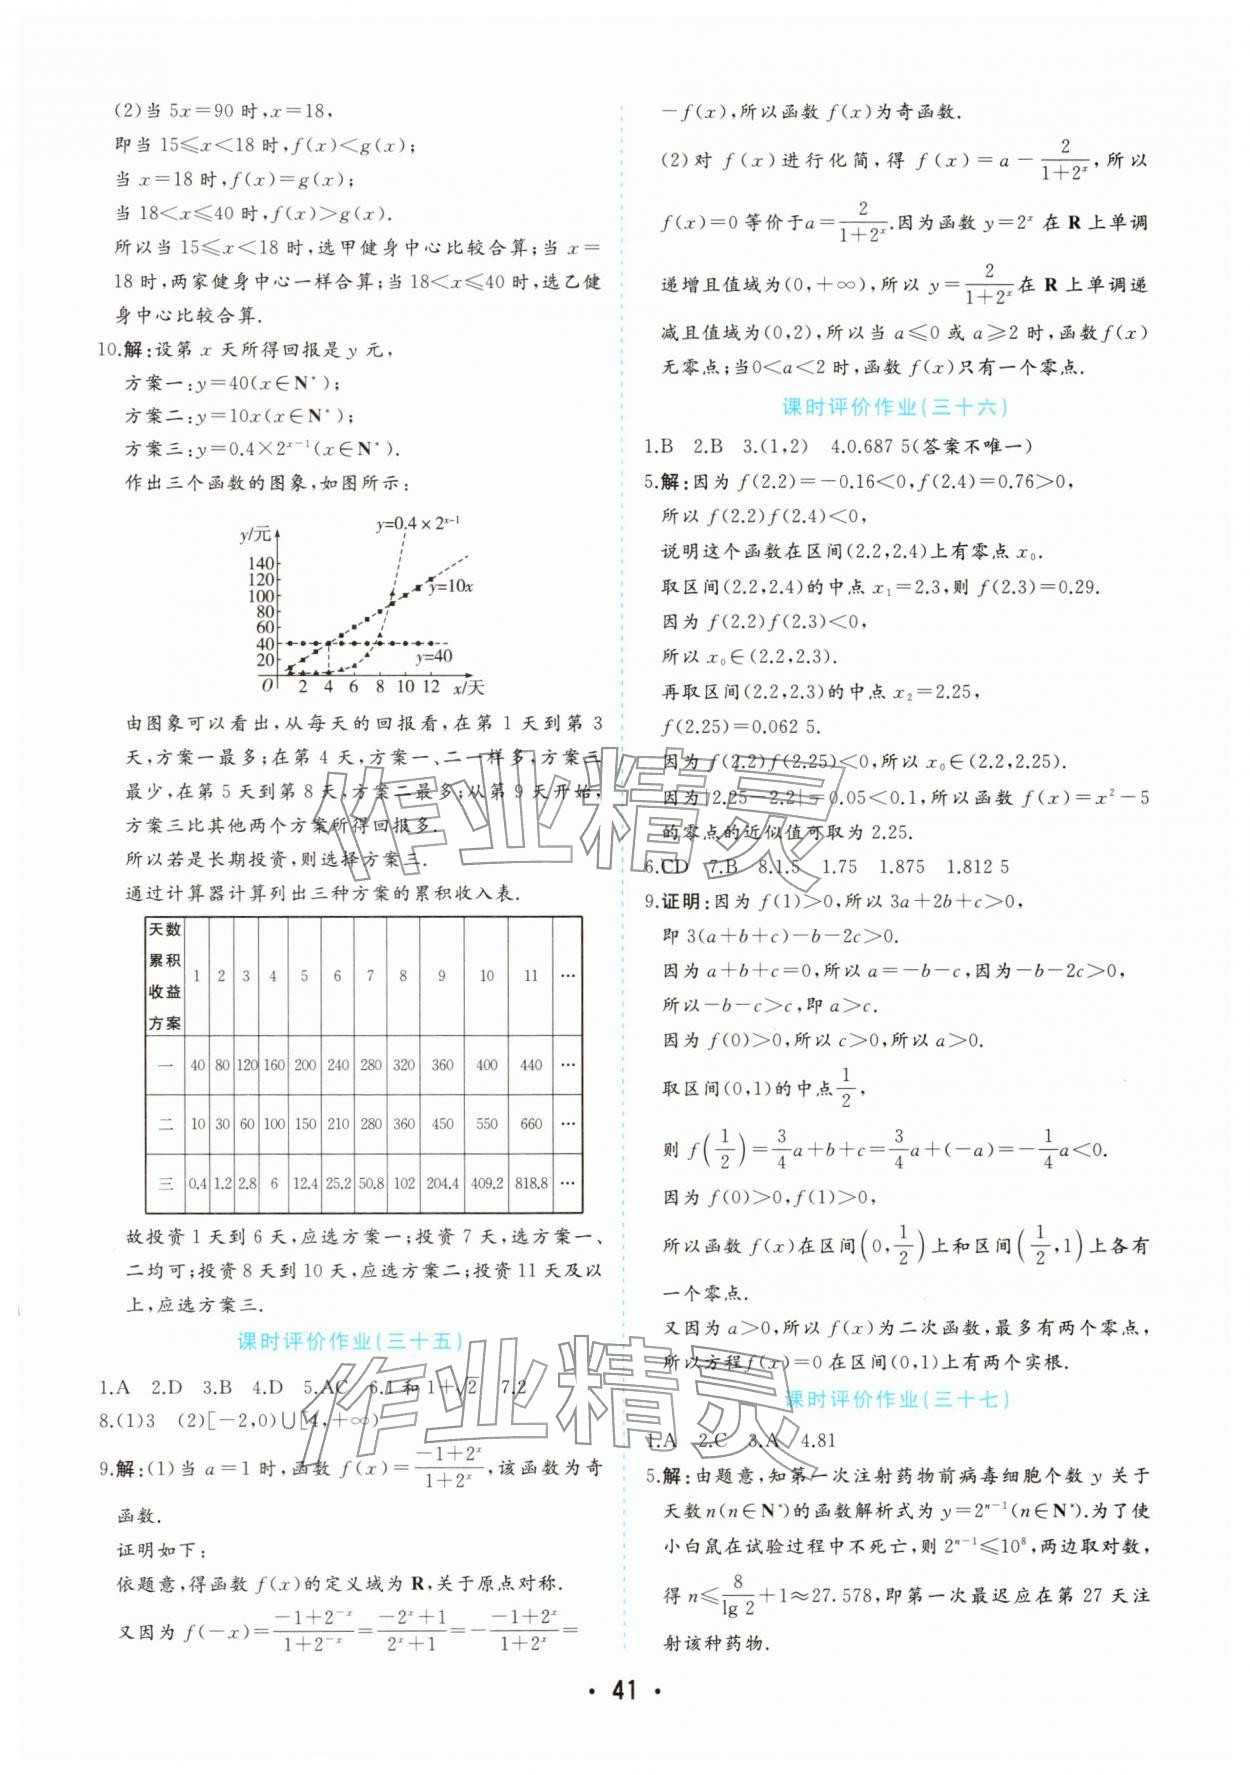 (2)当 5x=90 时,x=18,
即当 15≤x<18 时,f(x)<g(x);
当 x=18 时,f(x)=g(x);
当 18<x≤40 时,f(x)>g(x).
所以当 15≤x<18 时,选甲健身中心比较合算;当 x=
18 时,两家健身中心一样合算;当 18<x≤40 时,选乙健
身中心比较合算.
10.解:设第 x 天所得回报是 y 元,
方案一:y=40(x∈N*);
方案二:y=10x(x∈N*);
方案三:y=0.4×2^{x-1}(x∈N*).
作出三个函数的图象,如图所示:
y/元
y=0.4×2^{x-1}
140
120
100
80
60
40
20
y=10x
y=40
O 2 4 6 8 10 12 x/天
由图象可以看出,从每天的回报看,在第 1 天到第 3
天,方案一最多;在第 4 天,方案一、二一样多,方案三
最少,在第 5 天到第 8 天,方案二最多;从第 9 天开始,
方案三比其他两个方案所得回报多.
所以若是长期投资,则选择方案三.
通过计算器计算列出三种方案的累积收入表.
天数
累积
收益
方案
1 2 3 4 5 6 7 8 9 10 11 …
一 40 80 120 160 200 240 280 320 360 400 440 …
二 10 30 60 100 150 210 280 360 450 550 660 …
三 0.4 1.2 2.8 6 12.4 25.2 50.8 102 204.4 409.2 818.8 …
故投资 1 天到 6 天,应选方案一;投资 7 天,选方案一、
二均可;投资 8 天到 10 天,应选方案二;投资 11 天及以
上,应选方案三.
课时评价作业(三十五)
1.A 2.D 3.B 4.D 5.AC 6.1 和 1+√2 7.2
8.(1)3 (2)[-2,0)∪[4,+∞)
9.解:(1)当 a=1 时,函数 f(x)=\frac{-1+2^x}{1+2^x},该函数为奇
函数.
证明如下:
依题意,得函数 f(x)的定义域为 R,关于原点对称.
又因为 f(-x)=\frac{-1+2^{-x}}{1+2^{-x}}=\frac{-2^x+1}{2^x+1}=-\frac{-1+2^x}{1+2^x}=
-f(x),所以函数 f(x)为奇函数.
(2)对 f(x)进行化简,得 f(x)=a-\frac{2}{1+2^x},所以
f(x)=0 等价于a=\frac{2}{1+2^x}.因为函数 y=2^x 在 R 上单调
递增且值域为(0,+∞),所以 y=\frac{2}{1+2^x}在 R 上单调递
减且值域为(0,2),所以当 a≤0 或 a≥2 时,函数 f(x)
无零点;当0<a<2 时,函数 f(x)只有一个零点.
课时评价作业(三十六)
1.B 2.B 3.(1,2) 4.0.687 5(答案不唯一)
5.解:因为 f(2.2)=-0.16<0,f(2.4)=0.76>0,
所以 f(2.2)f(2.4)<0,
说明这个函数在区间(2.2,2.4)上有零点 x₀.
取区间(2.2,2.4)的中点 x₁=2.3,则 f(2.3)=0.29.
因为 f(2.2)f(2.3)<0,
所以 x₀∈(2.2,2.3).
再取区间(2.2,2.3)的中点 x₂=2.25,
f(2.25)=0.062 5.
因为 f(2.2)f(2.25)<0,所以 x₀∈(2.2,2.25).
因为|2.25-2.2|=0.05<0.1,所以函数 f(x)=x²-5
的零点的近似值可取为 2.25.
6.CD 7.B 8.1.5 1.75 1.875 1.812 5
9.证明:因为 f(1)>0,所以 3a+2b+c>0,
即 3(a+b+c)-b-2c>0.
因为 a+b+c=0,所以 a=-b-c,因为-b-2c>0,
所以-b-c>c,即 a>c.
因为 f(0)>0,所以 c>0,所以 a>0.
取区间(0,1)的中点\frac{1}{2},
则 f(\frac{1}{2})=\frac{3}{4}a+b+c=\frac{3}{4}a+(-a)=-\frac{1}{4}a<0.
因为 f(0)>0,f(1)>0,
所以函数 f(x)在区间(0,\frac{1}{2})上和区间(\frac{1}{2},1)上各有
一个零点.
又因为 a>0,所以 f(x)为二次函数,最多有两个零点,
所以方程f(x)=0 在区间(0,1)上有两个实根.
课时评价作业(三十七)
1.A 2.C 3.A 4.81
5.解:由题意,知第一次注射药物前病毒细胞个数 y 关于
天数 n(n∈N*)的函数解析式为 y=2^{n-1}(n∈N*).为了使
小白鼠在试验过程中不死亡,则 2^{n-1}≤10⁸,两边取对数,
得 n≤\frac{8}{lg 2}+1≈27.578,即第一次最迟应在第 27 天注
射该种药物.
作业精灵
作业精灵
· 41 ·